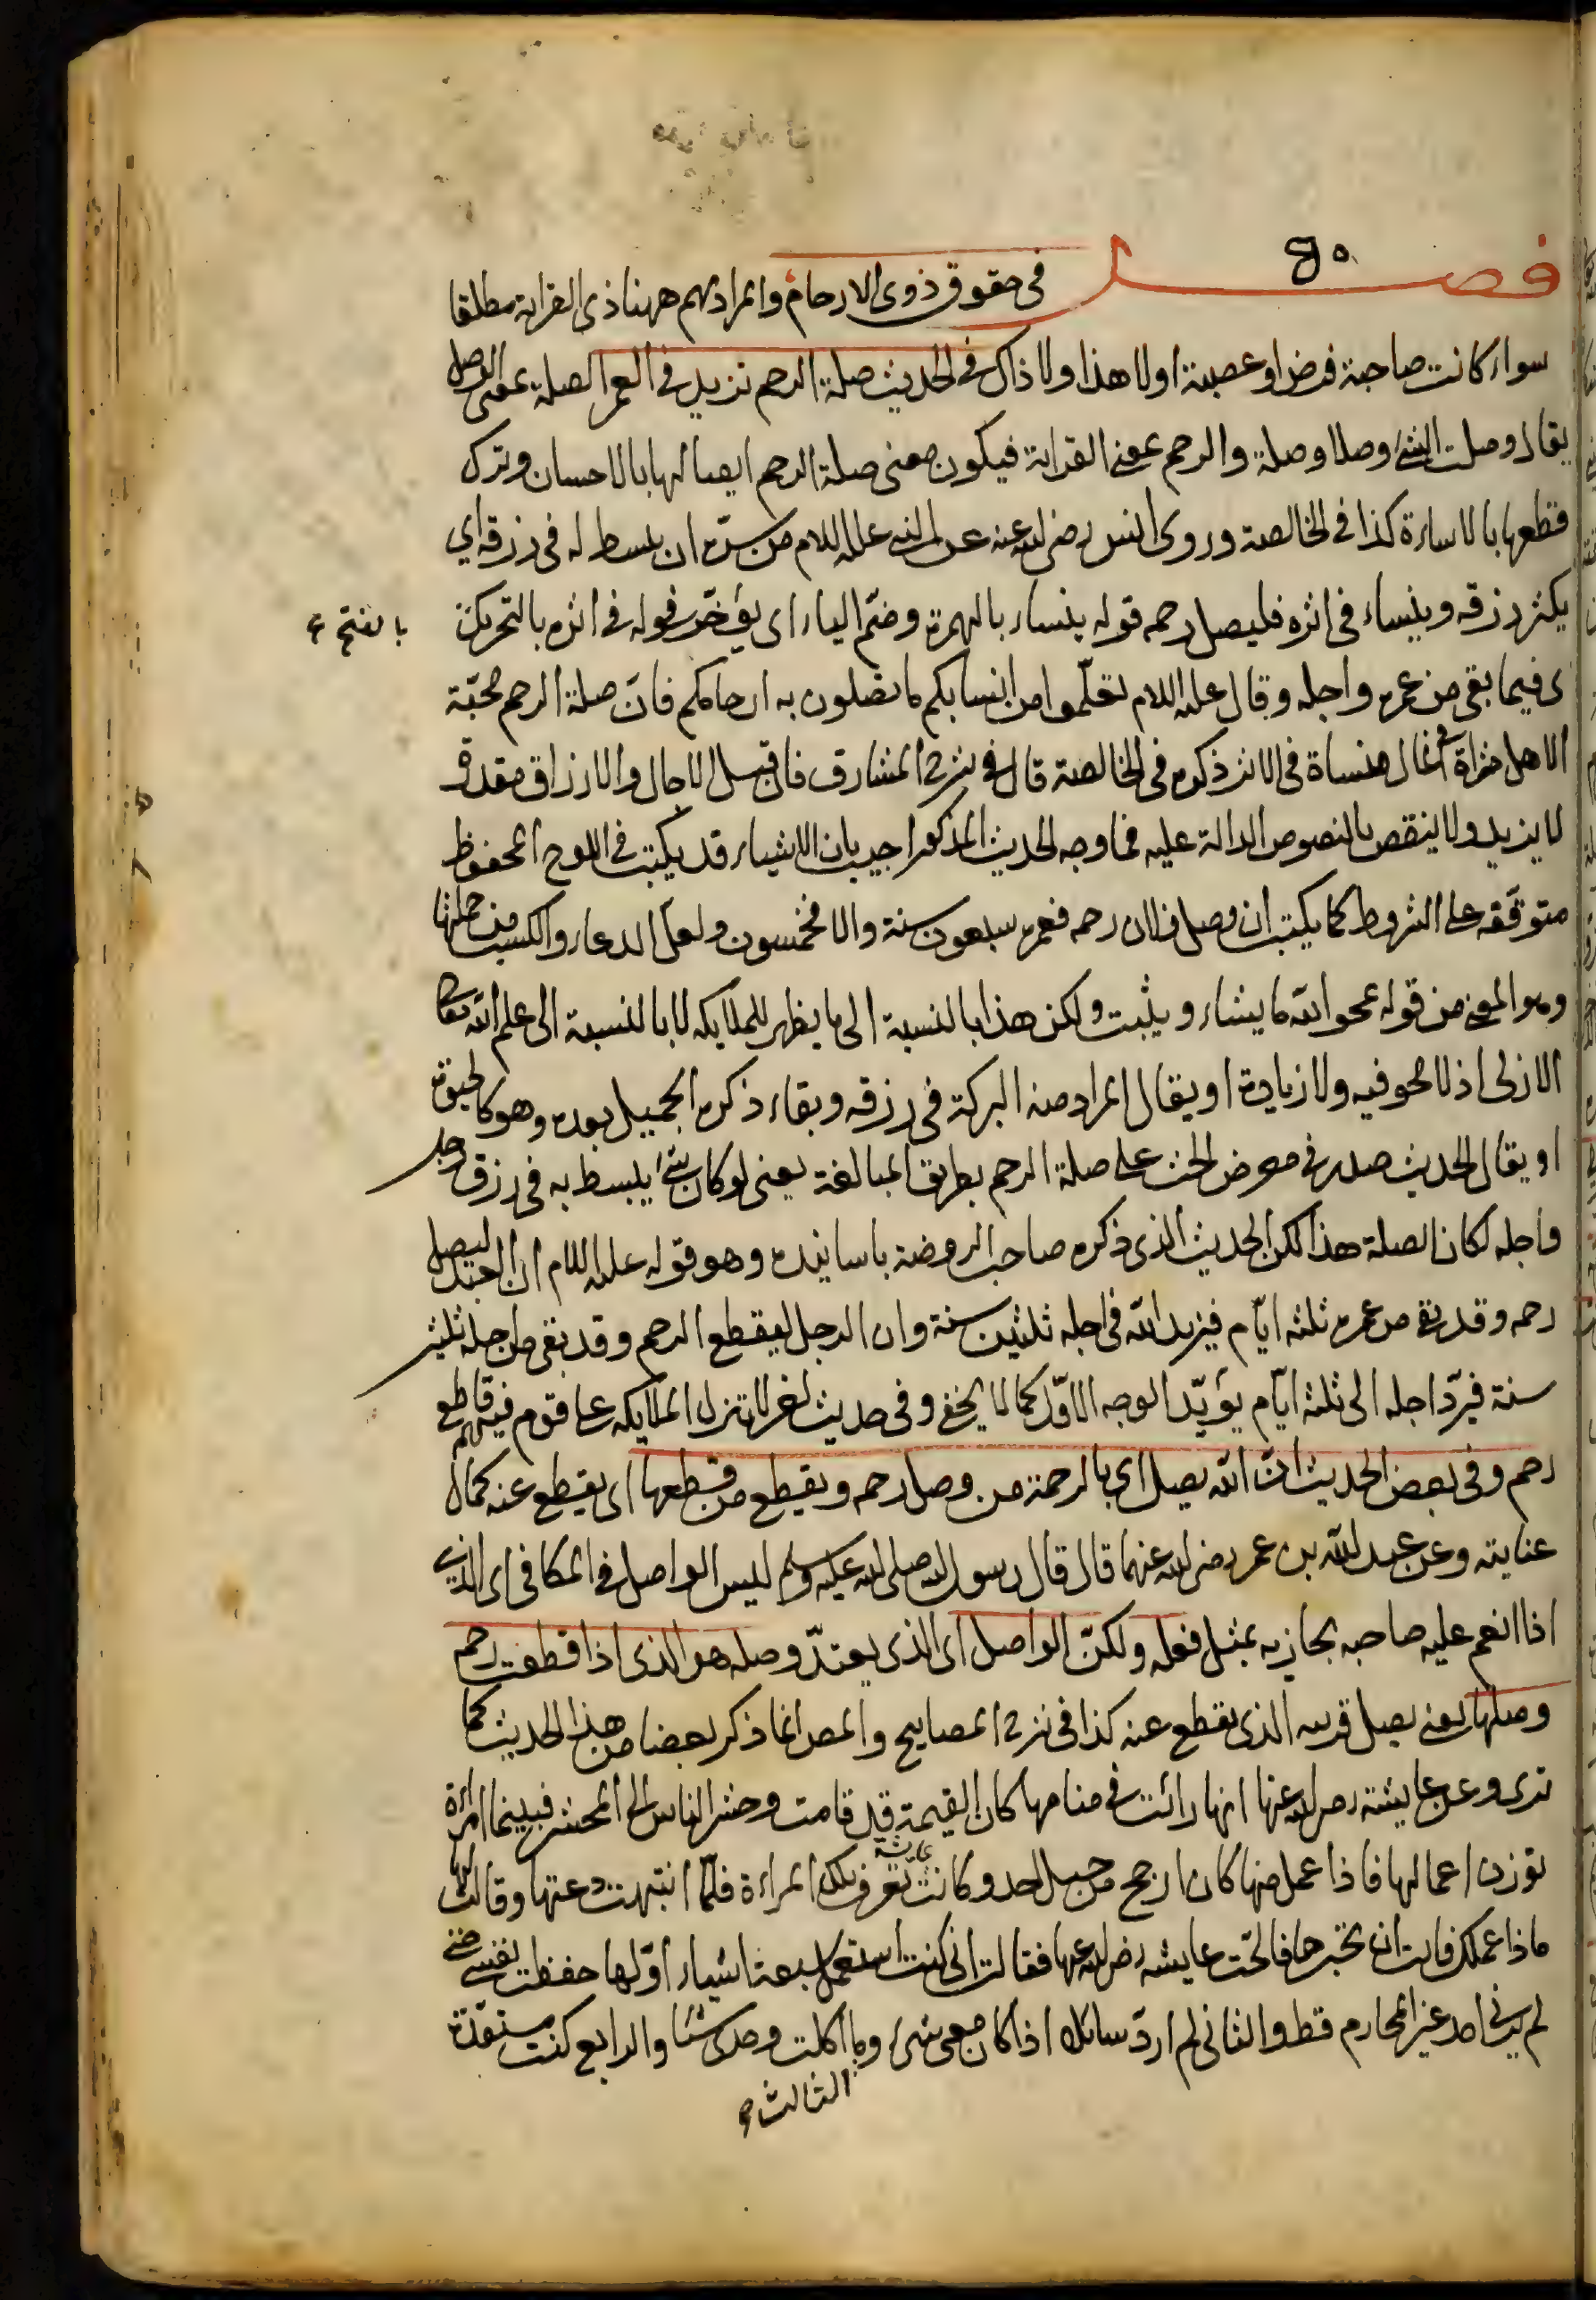 فصل ٤٥ فى حقوق ذوى الارحام والمراد بهم ههنا ذى القرابة مطلقا
سواء كانت صاحبة فرض او عصبة او لا هذا ولا ذاك فى الحديث صلة الرحم تزيد فى العمر الصلة بمعنى الوصل
يقال وصلت الشئ وصلا وصلة والرحم بمعنى القرابة فيكون معنى صلة الرحم ايصالها بالاحسان وترك
قطعها بالاساءة كذا فى الخالصة وروى انس رضى الله عنه عن النبى عليه السلام من سرّه ان يبسط له فى رزقه اي
يكثر رزقه وينساء فى اثره فليصل رحمه قوله ينساء بالهمزة وضمّ الياء اى يؤخّر قوله فى اثره بالتحريك
بالفتح
ى فيما بقى من عمره واجله وقال عليه السلام تعلّموا من انسابكم ما تصلون به ارحامكم فانّ صلة الرحم محبّة
الاهل مثراة فى المال منساة فى الاثر ذكره فى الخالصة قال فى شرح المشارق فان قيل الاجال والارزاق مقدرة
لا يزيد ولا ينقص بالنصوص الدالة عليه فما وجه الحديث المذكور اجيب بان الاشياء قد يكتب فى اللوح المحفوظ
متوقفه على الشروط كما يكتب ان وصل فلان رحمه فعمره سبعون سنة والا فخمسون ولعلّ الدعاء والكسب من جملتها
وهو المعنى من قوله يمحو الله ما يشاء ويثبت ولكن هذا بالنسبة الى ما يظهر للملايكه لا بالنسبة الى علم الله تعالى
الازلى اذ لا محو فيه ولا زيادة او يقال المراد منه البركة فى رزقه وبقاء ذكره الجميل بعده وهو كالحيوة
او يقال الحديث صدر فى معرض الحث على صلة الرحم بطريق المبالغة يعنى لو كان شئ يبسط به فى رزق رجل
واجله لكان الصلة هذا لكن الحديث الذى ذكره صاحب الروضة باسانيده وهو قوله عليه السلام ان العبد ليصل
رحمه وقد بقى من عمره ثلثه ايّام فيزيد الله فى اجله ثلثين سنة وان الرجل ليقطع الرحم وقد بقى من اجله ثلثين
سنة فيردّ اجله الى ثلثه ايّام يؤيّد الوجه الاوّل كما لا يخفى وفى حديث اخر لا تنزل الملايكه على قوم فيهم قاطع
رحم وفى بعض الحديث انّ الله يصل اى بالرحمة من وصل رحمه ويقطع من قطعها اى يقطع عنه كمال
عنايته وعن عبد الله بن عمر رضى الله عنهما قال قال رسول الله صلى الله عليه وسلم ليس الواصل فى المكافى اى الذى
اذا انعم عليه صاحبه يجازيه بمثل فعله ولكنّ الواصل اى الذى يعتدّ وصله هو الذى اذا قطعت رحمه
وصلها يعنى يصل قريبه الذى يقطع عنه كذا فى شرح المصابيح والمص انما ذكر بعضا من هذا الحديث كما
ترى وعن عايشة رضى الله عنها انها رائت فى منامها كان القيمة قد قامت وحشر الناس الى المحشر فبينما امراءة
توزن اعمالها فاذا عمل منها كان ارجح من جبل احد وكانت عايشة تعرف تلك المراءة فلمّا انتبهت دعتها وقالت لها
ماذا عملك فابت ان تخبرها فالحّت عايشه رضى الله عنها فقالت انى كنت استعمل سبعة اشياء اوّلها حفظت نفسى حتى
لم يرنى احد غير المحارم قط والثانى لم اردّ سائلا اذا كان معى شئ وما اكلت وحدى شئا والرابع كنت مستعدّة
الثالث